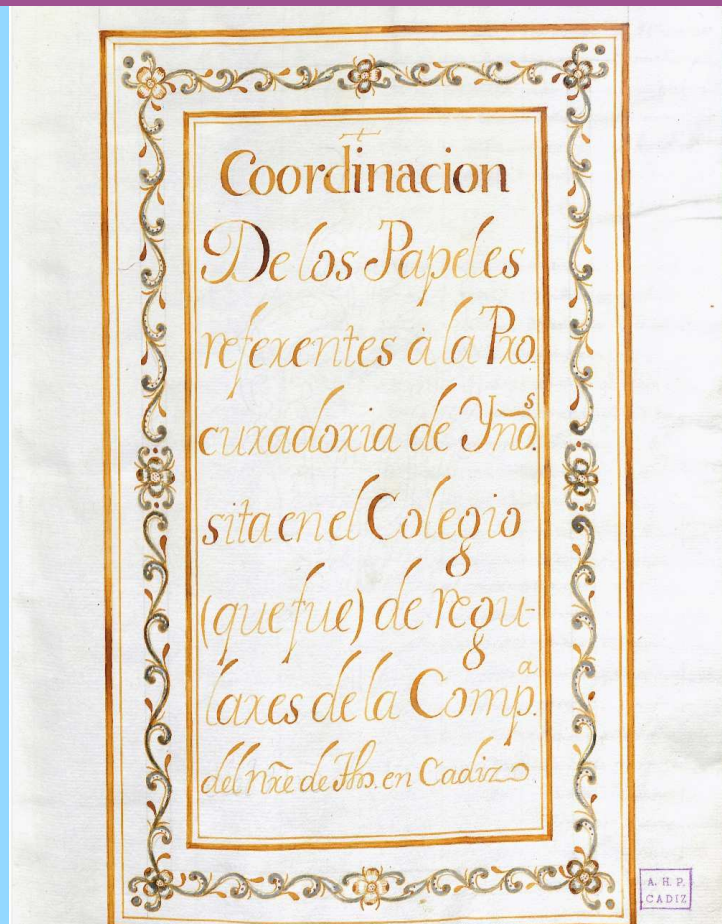 Coordinacion
De los Papeles
referentes à la Pro
curadoria de Ynds.
sita en el Colegio
(que fue) de regu-
lares de la Compa.
del nre de Jhs. en Cadiz
A. H. P.
CADIZ